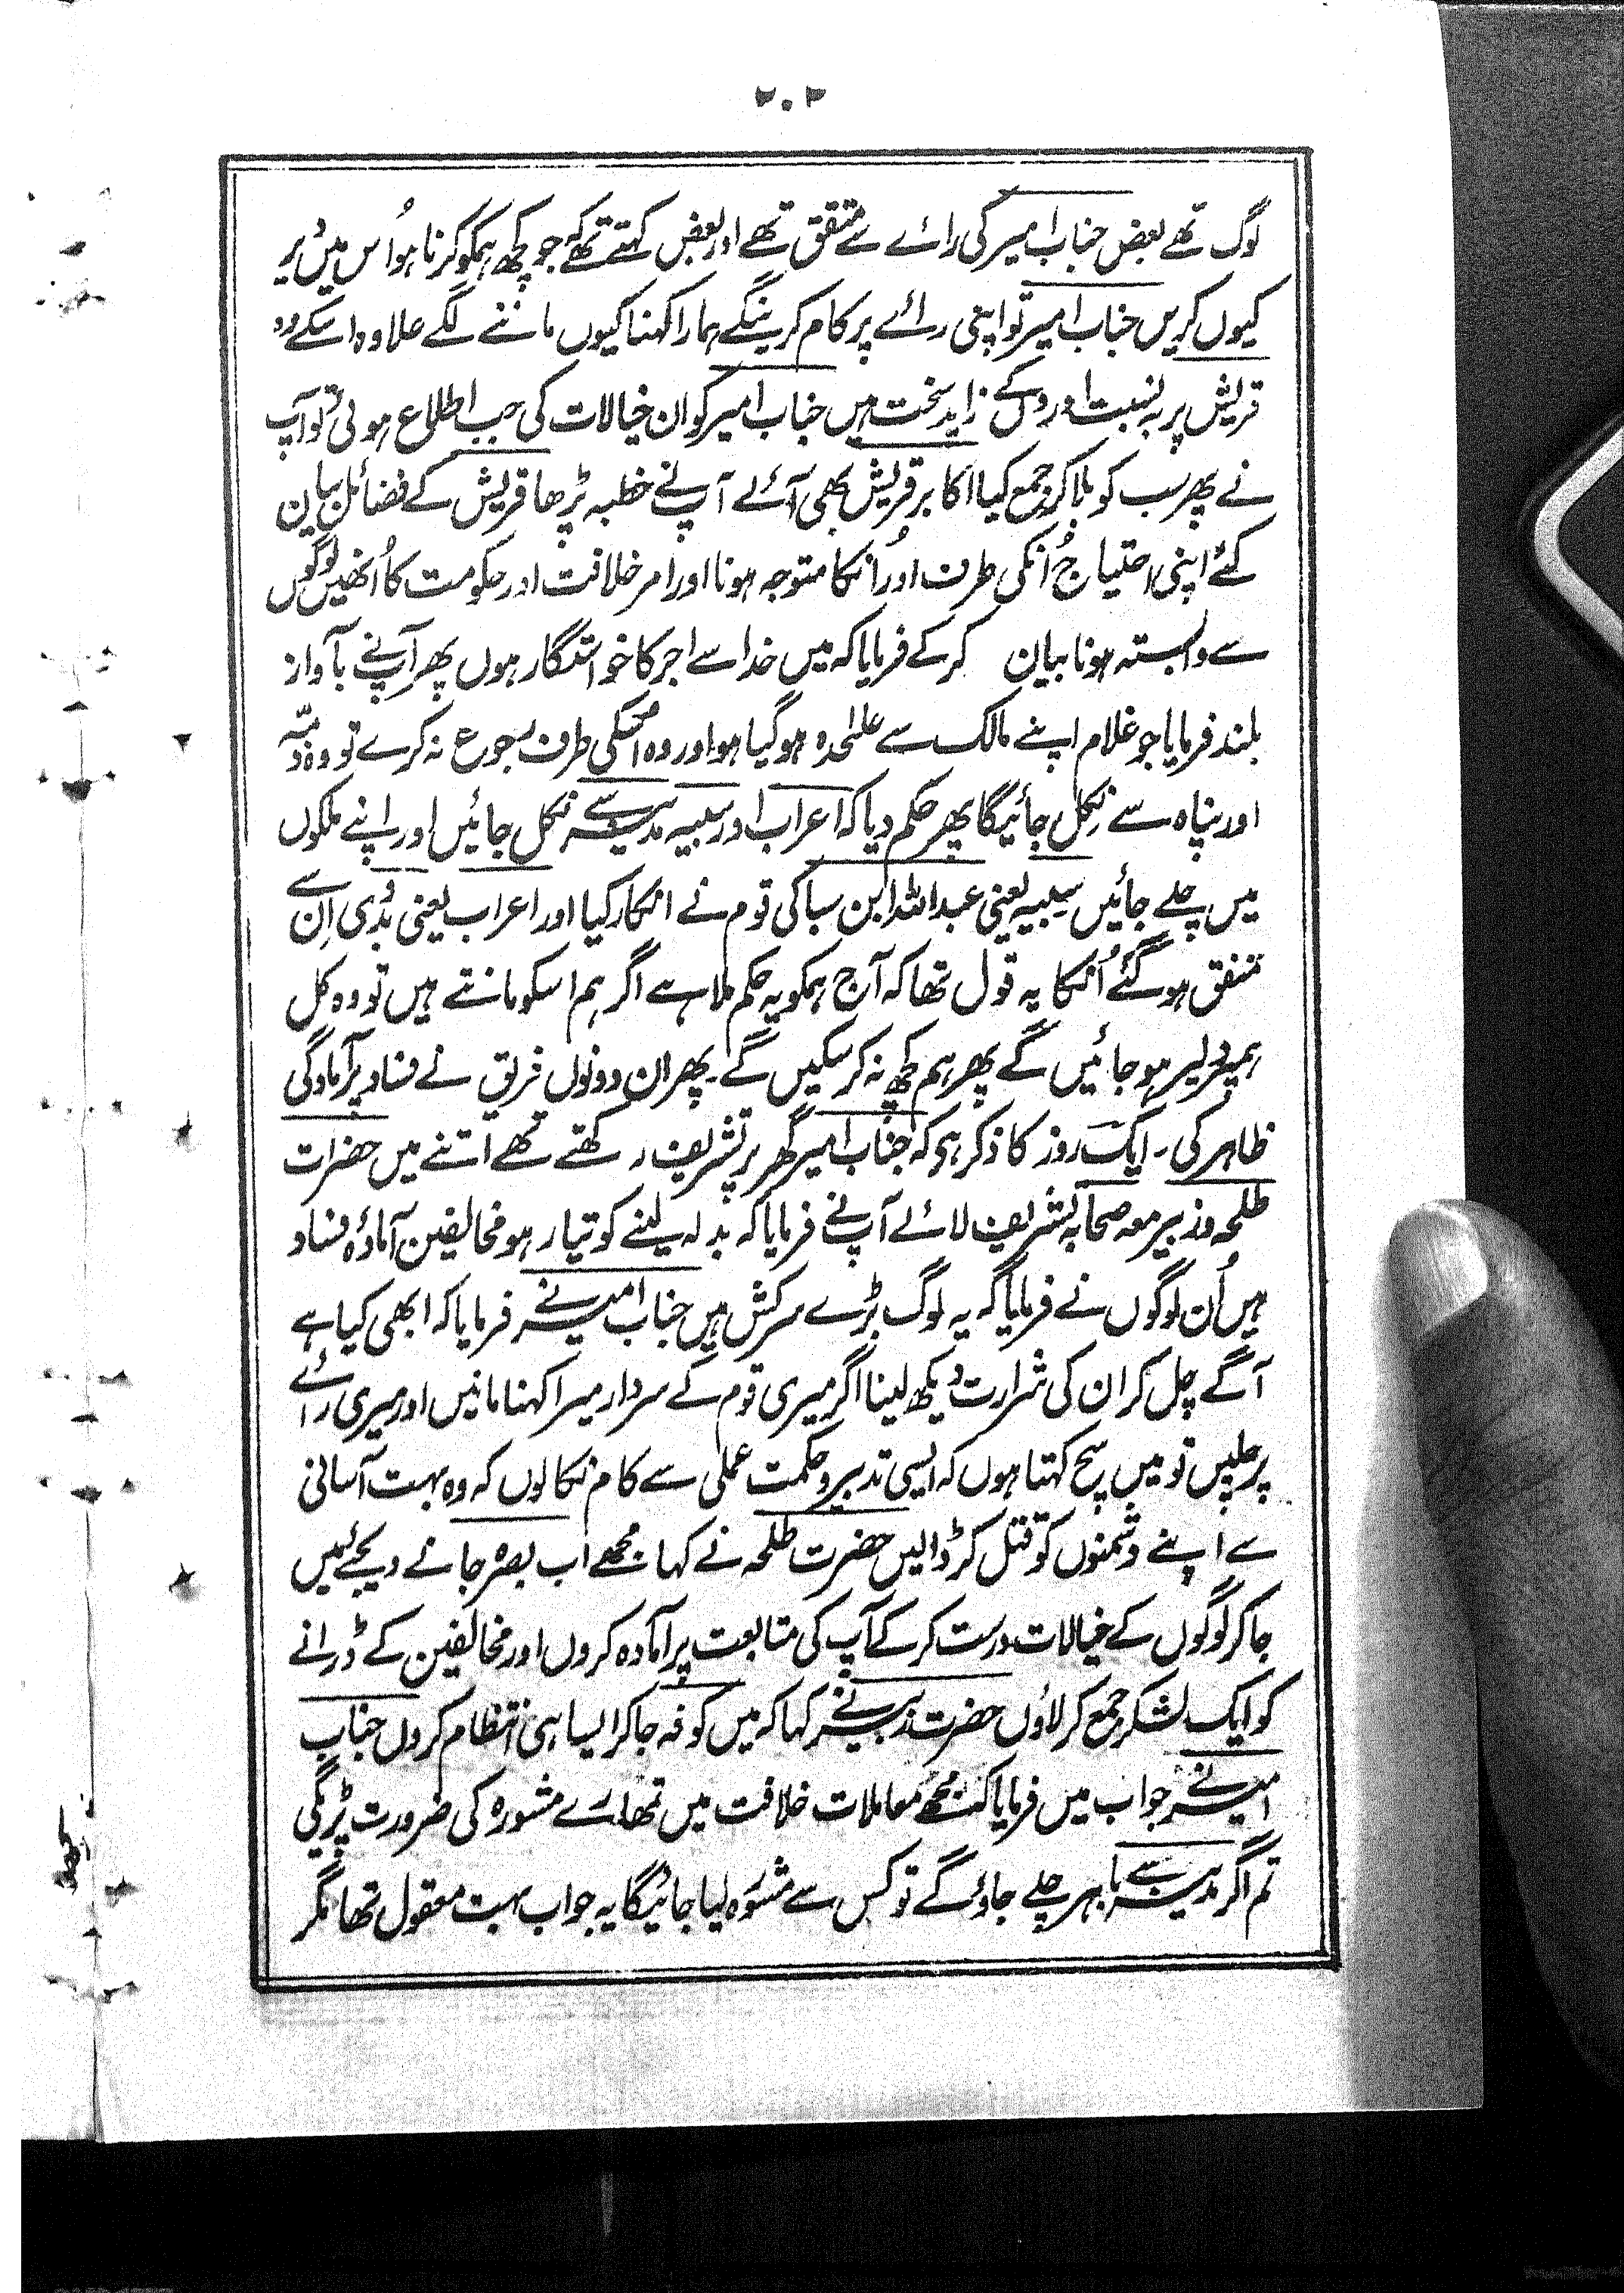 ۲۰۲
لوگ تھے بعض جناب امیر کی رائے سے متفق تھے اور بعض کہتے تھے کہ جو کچھ ہمکو کرنا ہو اُس میں دیر
کیوں کریں جناب امیر تو اپنی رائے پر کام کرینگے ہمارا کہنا کیوں ماننے لگے علاوہ اسکے وہ
قریش پر بہ نسبت اوروں کے زاید سخت ہیں جناب امیر کو ان خیالات کی جب اطلاع ہوئی تو آپ
نے پھر سب کو بلا کر جمع کیا اکابر قریش بھی آئے آپ نے خطبہ پڑھا قریش کے فضائل بیان
کئے اپنی احتیاج اُنکی طرف اور اُنکا متوجہ ہونا اور امر خلافت اور حکومت کا اُنھیں لوگوں
سے وابستہ ہونا بیان کرکے فرمایا کہ میں خدا سے اجر کا خواستگار ہوں پھر آپنے بآواز
بلند فرمایا جو غلام اپنے مالک سے علٰحدہ ہوگیا ہو اور وہ اسکی طرف رجوع نہ کرے تو وہ ذمّہ
اور پناہ سے نکل جائیگا پھر حکم دیا کہ اعراب اور سبیہ مدینہ سے نکل جائیں اور اپنے ملکوں
میں چلے جائیں سبیہ یعنی عبداللہ ابن سبا کی قوم نے انکار کیا اور اعراب یعنی بدّی اِن سے
متفق ہوگئے اُنکا یہ قول تھا کہ آج ہمکو یہ حکم ملا ہے اگر ہم اسکو مانتے ہیں تو وہ کل
ہمپر دلیر ہو جائیں گے پھر ہم کچھ نہ کر سکیں گے۔ پھر ان دونوں فریق نے فساد پر آمادگی
ظاہر کی۔ ایک روز کا ذکر ہی کہ جناب امیر گھر پر تشریف رکھتے تھے اتنے میں حضرات
طلحہ و زبیر معہ صحابہ تشریف لائے آپ نے فرمایا کہ بدلہ لینے کو تیار ہو مخالفین آمادۂ فساد
ہیں اُن لوگوں نے فرمایا کہ یہ لوگ بڑے سرکش ہیں جناب امیر نے فرمایا کہ ابھی کیا ہے
آگے چل کر ان کی شرارت دیکھ لینا اگر میری قوم کے سردار میرا کہنا مانیں اور میری رائے
پر چلیں تو میں سچ کہتا ہوں کہ ایسی تدبیر و حکمت عملی سے کام نکالوں کہ وہ بہت آسانی
سے اپنے دشمنوں کو قتل کر ڈالیں حضرت طلحہ نے کہا مجھے اب بصرہ جانے دیجئے میں
جا کر لوگوں کے خیالات درست کرکے آپ کی متابعت پر آمادہ کروں اور مخالفین کے ڈرانے
کو ایک لشکر جمع کر لاؤں حضرت زبیر نے کہا کہ میں کوفہ جا کر ایسا ہی انتظام کروں جناب
امیر نے جواب میں فرمایا کہ مجھے معاملات خلافت میں تمھارے مشورہ کی ضرورت پڑیگی
تم اگر مدینہ سے باہر چلے جاؤگے تو کس سے مشورہ لیا جائیگا یہ جواب بہت معقول تھا مگر